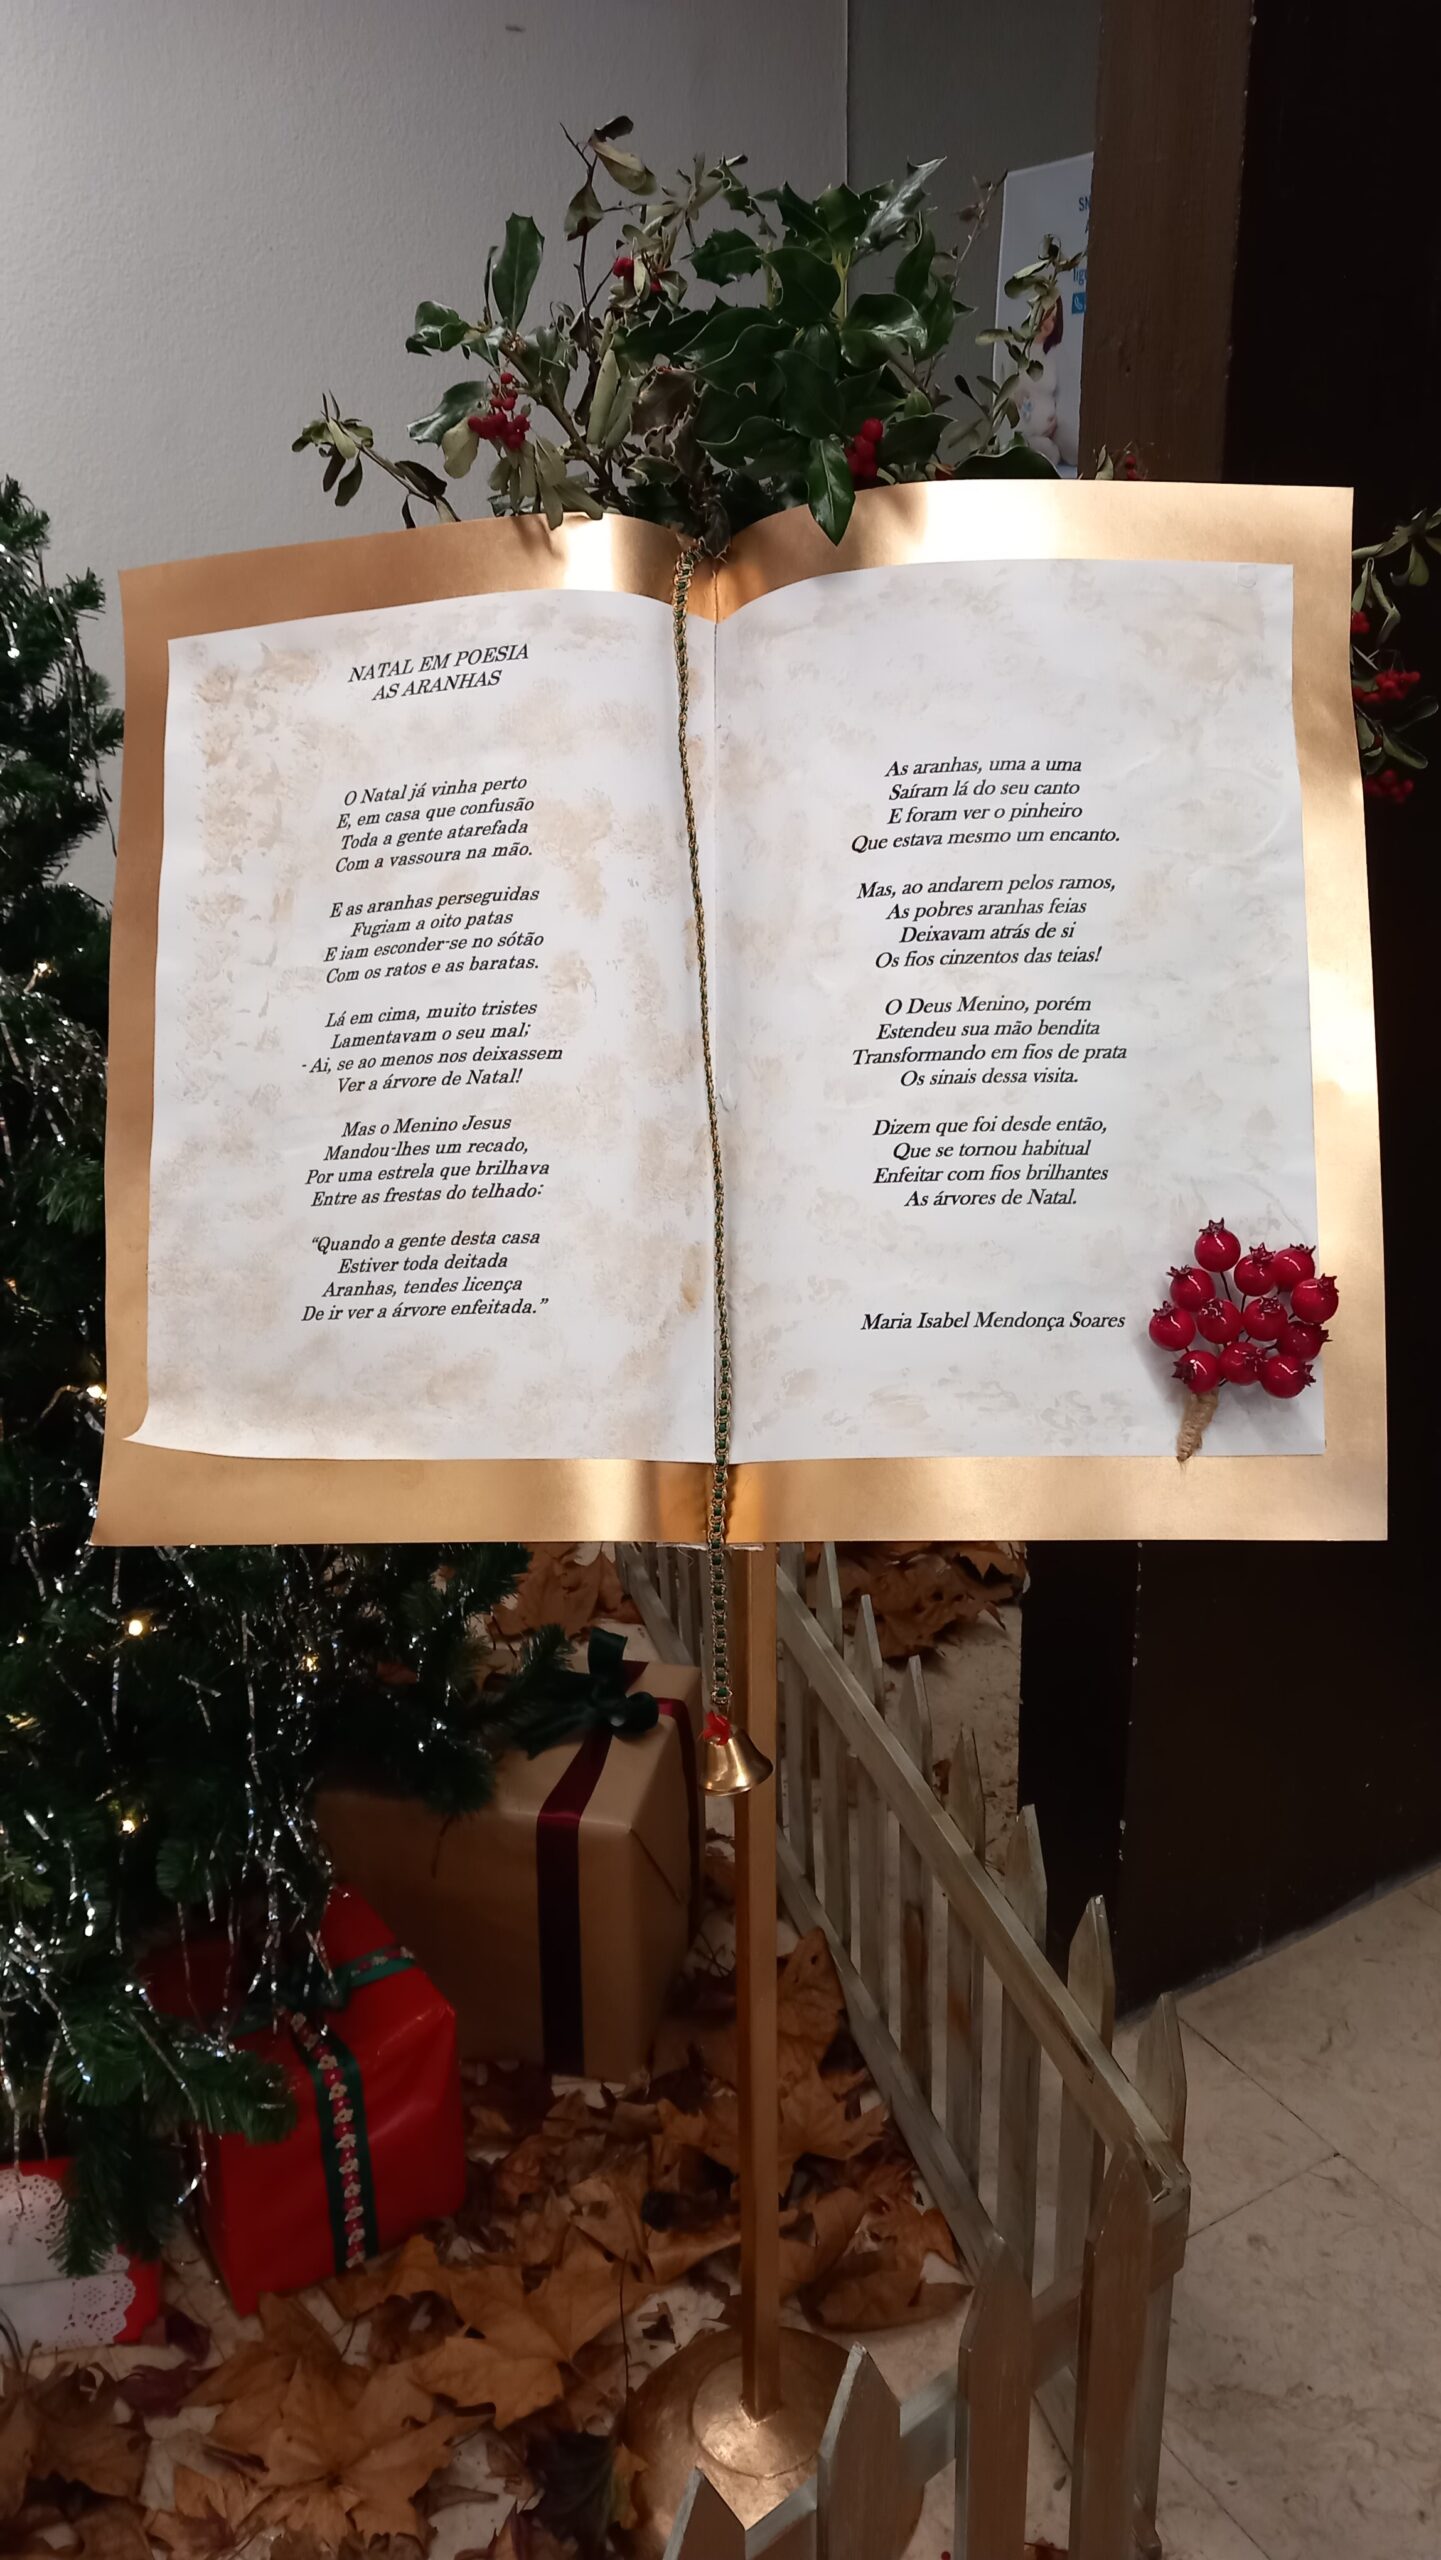 NATAL EM POESIA
AS ARANHAS
O Natal já vinha perto
E, em casa que confusão
Toda a gente atarefada
Com a vassoura na mão.
E as aranhas perseguidas
Fugiam a oito patas
E iam esconder-se no sótão
Com os ratos e as baratas.
Lá em cima, muito tristes
Lamentavam o seu mal;
- Ai, se ao menos nos deixassem
Ver a árvore de Natal!
Mas o Menino Jesus
Mandou-lhes um recado,
Por uma estrela que brilhava
Entre as frestas do telhado:
“Quando a gente desta casa
Estiver toda deitada
Aranhas, tendes licença
De ir ver a árvore enfeitada.”
As aranhas, uma a uma
Saíram lá do seu canto
E foram ver o pinheiro
Que estava mesmo um encanto.
Mas, ao andarem pelos ramos,
As pobres aranhas feias
Deixavam atrás de si
Os fios cinzentos das teias!
O Deus Menino, porém
Estendeu sua mão bendita
Transformando em fios de prata
Os sinais dessa visita.
Dizem que foi desde então,
Que se tornou habitual
Enfeitar com fios brilhantes
As árvores de Natal.
Maria Isabel Mendonça Soares